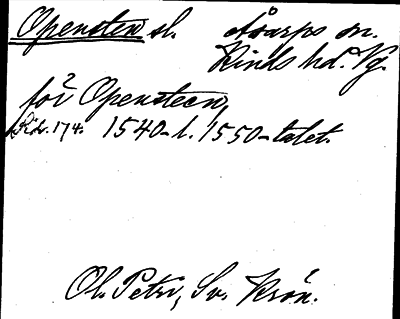 Opensten sl. Åsarps sn.
Kinds hd. Vg.
för Opensteen,
s. 174. 1540- l. 1550-talet.
Ol. Petri, Sv. Krön.